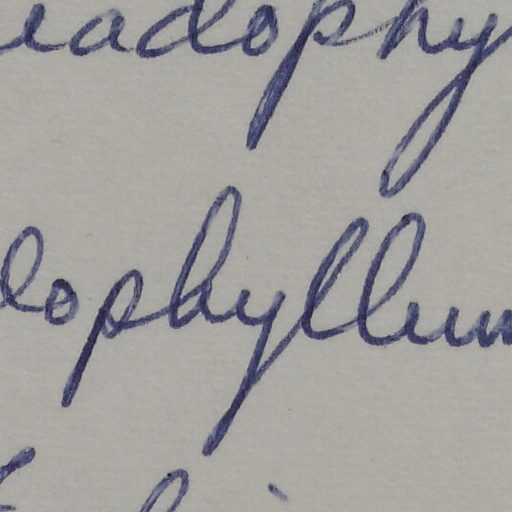 iadophy
lophyllum